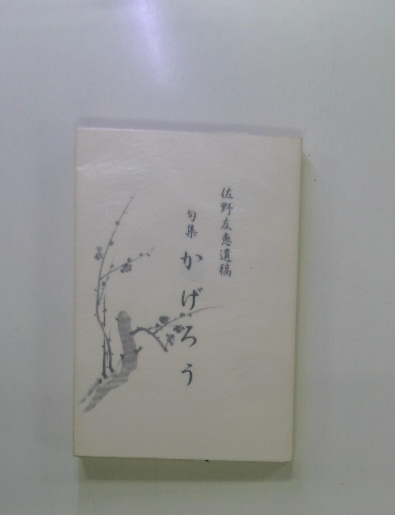 佐野友惠遺稿
句集 かげろう